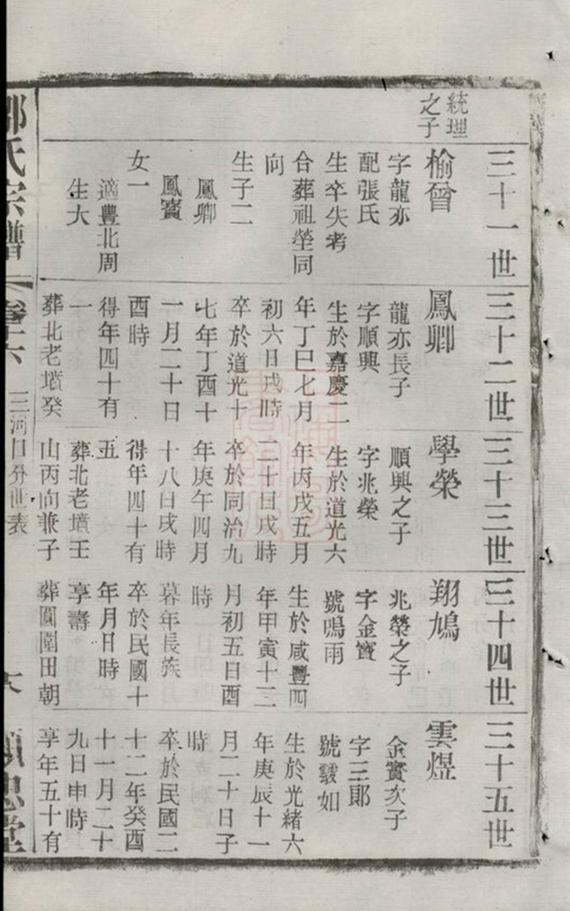 三十一世
統理
之子
榆曾
字龍亦
配張氏
生卒失考
合葬祖塋同
向
生子二
鳳卿
鳳賓
女一
適豐北周
生大
三十二世
鳳卿
龍亦長子
字順興
生於嘉慶二
年丁巳七月
初六日戌時
卒於道光十
七年丁酉十
一月二十日
酉時
得年四十有
一
葬北老墳癸
三十三世
學榮
順興之子
字兆榮
生於道光六
年丙戌五月
二十日戌時
卒於同治九
年庚午四月
十八日戌時
得年四十有
五
葬北老墳壬
山丙向兼子
三十四世
翔鳩
兆榮之子
字金寶
號鳴雨
生於咸豐四
年甲寅十二
月初五日酉
時
暮年長族
卒於民國十
年月日時
享壽
葬圓圍田朝
三十五世
雲煜
金寶次子
字三郎
號毅如
生於光緒六
年庚辰十一
月二十日子
時
卒於民國二
十二年癸酉
十一月二十
九日申時
享年五十有
氏宗譜
卷六
三河口分世表
忠堂